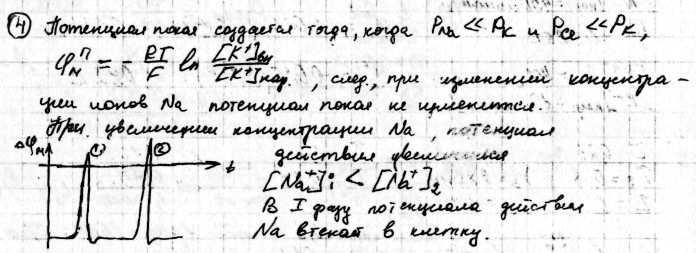 ④ Потенциал покоя создается тогда, когда P_Na ≪ P_K и P_Cl ≪ P_K,
φ_м^п = - RT/F ln [K⁺]вн/[K⁺]нар. , след., при изменении концентра-
ции ионов Na потенциал покоя не изменится.
При увеличении концентрации Na, потенциал
действия увеличится
Δφ_м ① ② t
[Na⁺]₁ < [Na⁺]₂
В I фазу потенциала действия
Na втекает в клетку.